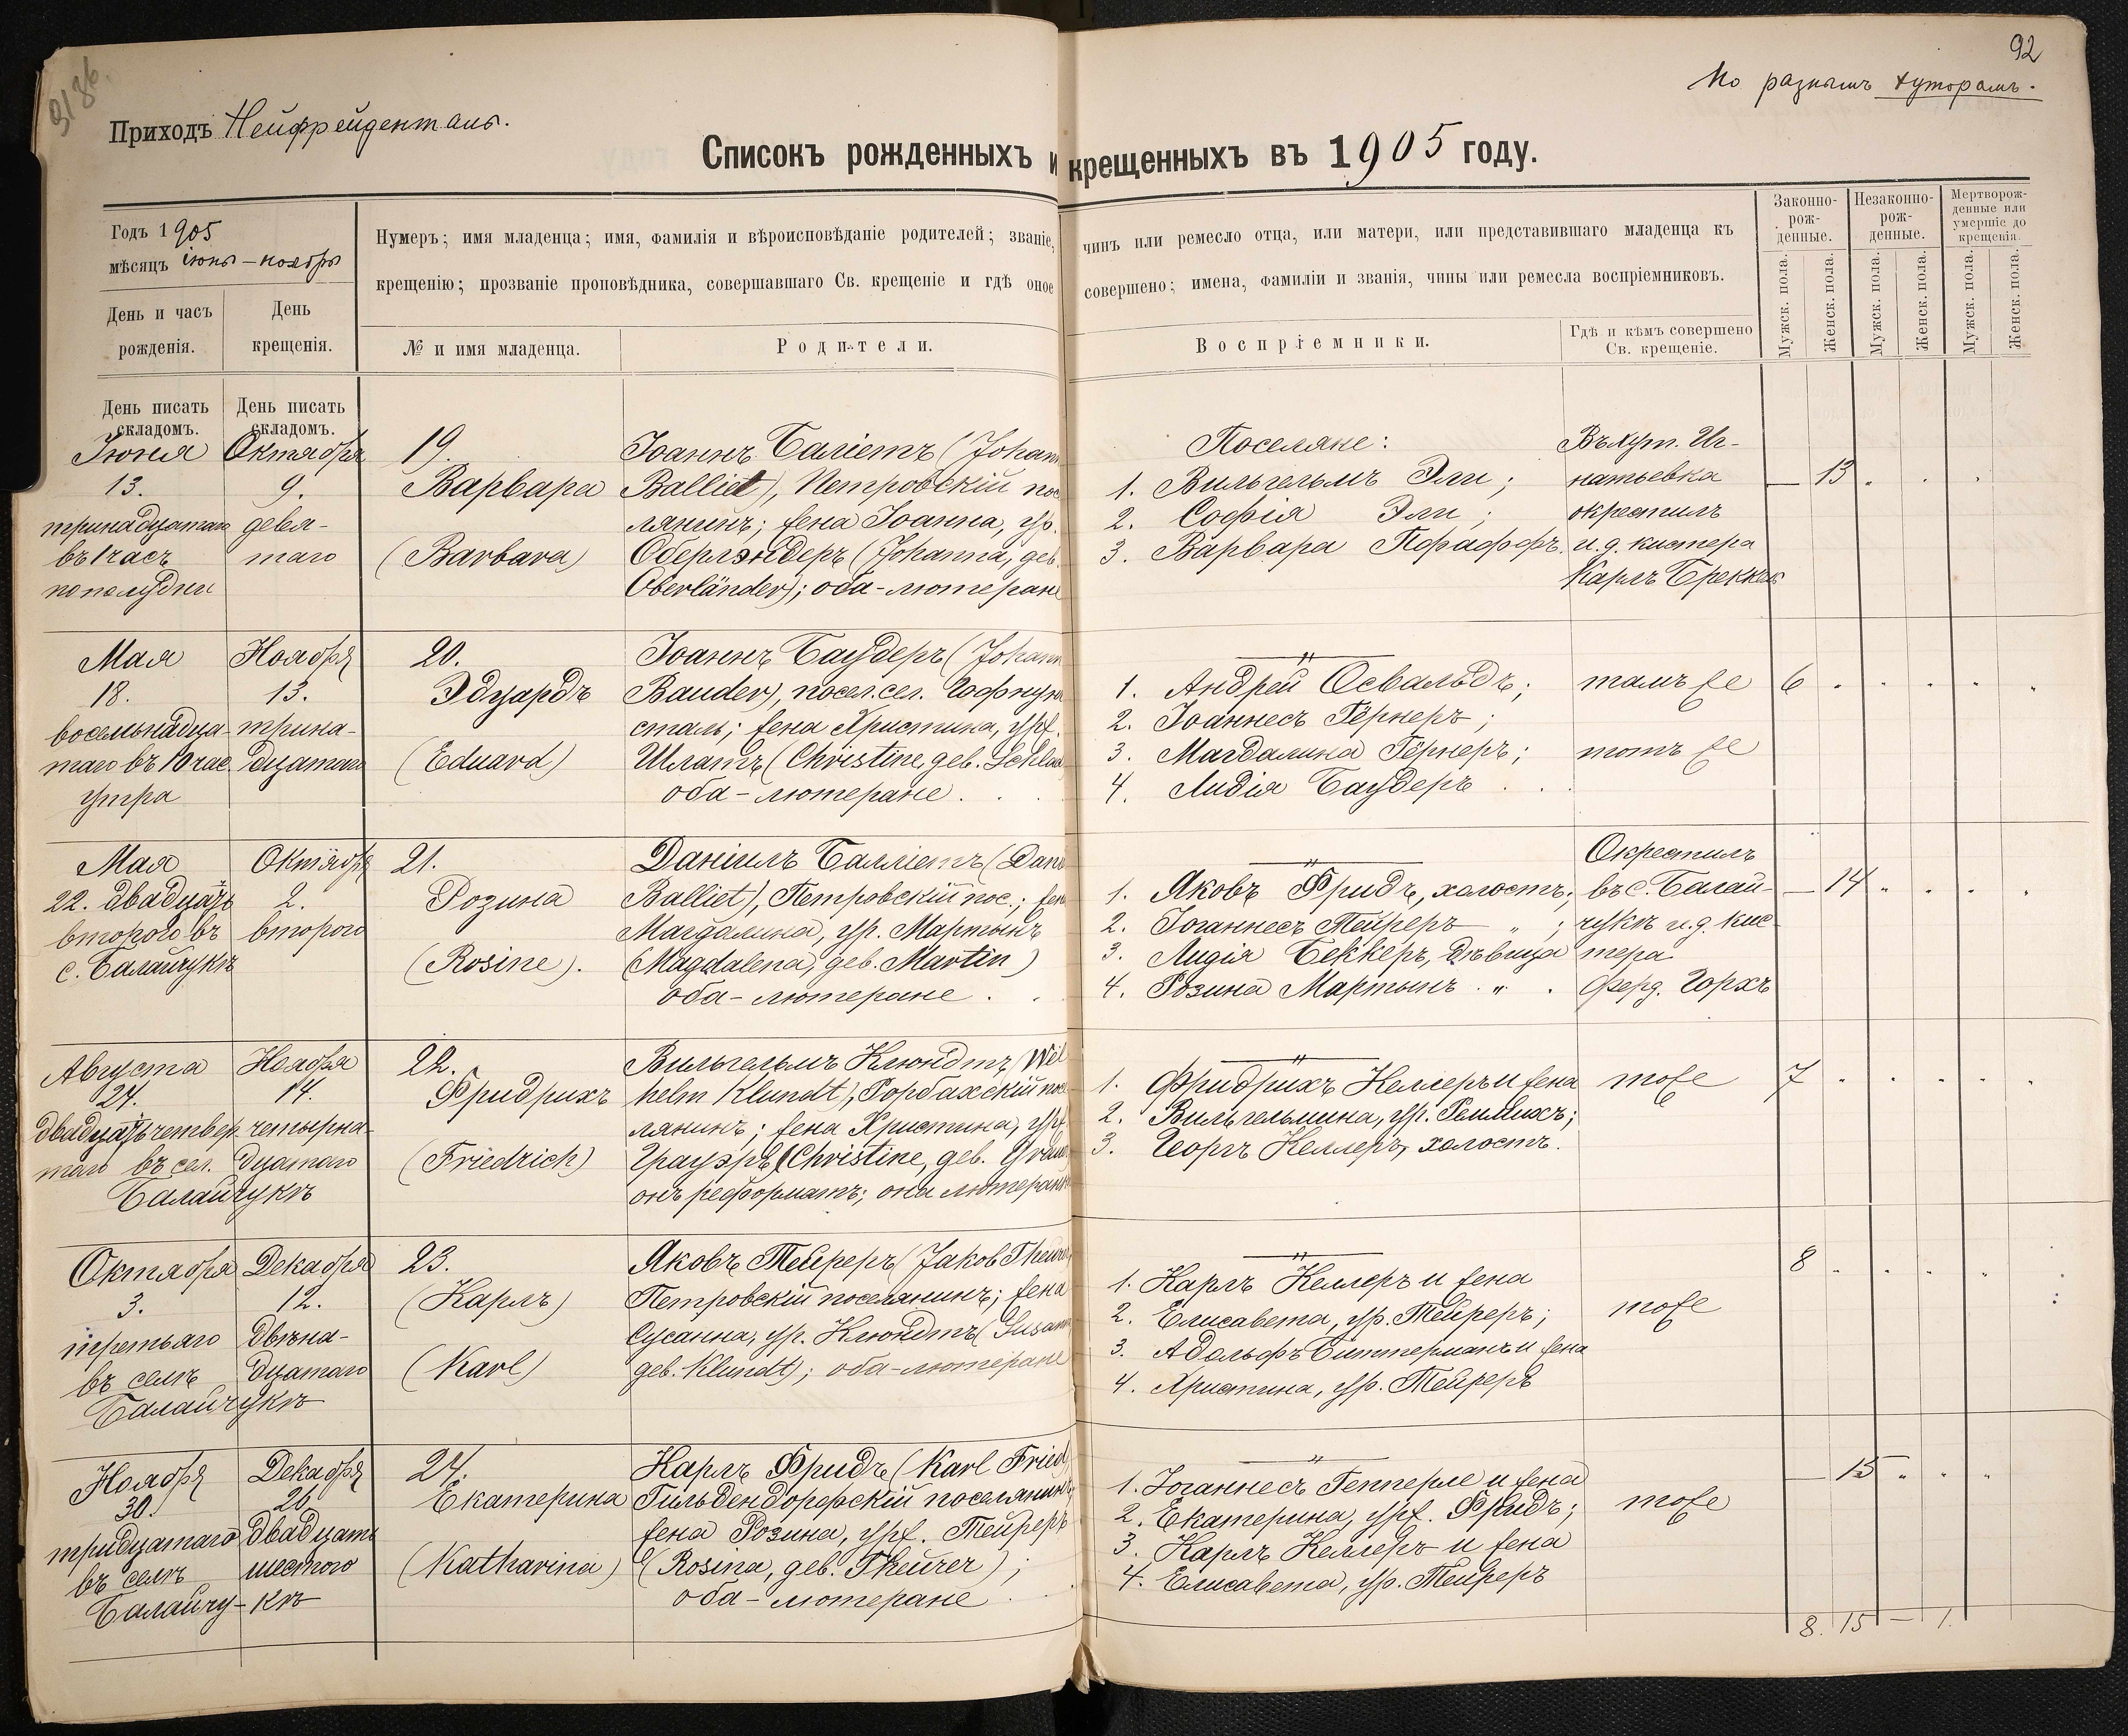 92
По разнымъ хуторамъ.
Приходъ Нейфрейденталь.
Списокъ рожденныхъ и крещенныхъ въ 1905 году.
Годъ 1905
мѣсяцъ іюнь – ноябрь
День и часъ рожденія.
День крещенія.
Нумеръ; имя младенца; имя, фамилія и вѣроисповѣданіе родителей; званіе, чинъ или ремесло отца, или матери, или представившаго младенца къ
крещенію; прозваніе проповѣдника, совершавшаго Св. крещеніе и гдѣ оное совершено; имена, фамиліи и званія, чины или ремесла воспріемниковъ.
№ и имя младенца.
Родители.
Воспріемники.
Гдѣ и кѣмъ совершено
Св. крещеніе.
Законно-
рож-
денные.
Незаконно-
рож-
денные.
Мертворож-
денные или
умершіе до
крещенія.
Мужск. пола.
Женск. пола.
Мужск. пола.
Женск. пола.
Мужск. пола.
Женск. пола.
День писать
складомъ.
День писать
складомъ.
Іюня
13.
тринадцатаго
въ 1 часъ
пополудни
Октября
9.
девя-
таго
19.
Варвара
(Barbara)
Іоаннъ Баліетъ (Johann
Balliet), Петровскій посе
лянинъ; жена Іоанна, ур.
Оберлэндеръ (Johanna, geb.
Oberländer); оба - лютеране
Поселяне:
1. Вильгельмъ Эли;
2. Софія Эли;
3. Варвара Пфаффъ.
Въ хут. Иг-
натьевка
окрестилъ
и.д. кистера
Карлъ Бреккель
— 13
Мая
18.
восемьнадца-
таго въ 10 час.
утра
Ноября
13.
трина-
дцатаго
20.
Эдуардъ
(Eduard)
Іоаннъ Баудеръ (Johann
Bauder), посел. сел. Гофнунг
сталь; жена Христина, урж.
Шлатъ (Christine, geb. Schlat
оба - лютеране.
— " —
1. Андрей Освальдъ;
2. Іоаннесъ Гёрнеръ;
3. Магдалина Гёрнеръ;
4. Лидія Баудеръ
тамъ же
тотъ же
6
Мая
22. двадцать
второго въ
с. Балайчукѣ
Октября
2.
второго
21.
Розина
(Rosine).
Даніилъ Балліетъ (Dani
Balliet), Петровскій пос.; жена
Магдалина, ур. Мартынъ
(Magdalena, geb. Martin)
оба - лютеране.
— " —
1. Яковъ Фридъ, холостъ;
2. Іоганнесъ Тейреръ " ;
3. Лидія Беккеръ, дѣвица
4. Розина Мартынъ " .
Окрестилъ
въ с. Балай-
чукѣ и.д. кис-
тера
Ферд. Горхъ
— 14
Августа
24.
двадцать четвер-
таго въ сел.
Балайчукѣ
Ноября
14.
четырна-
дцатаго
22.
Фридрихъ
(Friedrich)
Вильгельмъ Клюндтъ (Wil
helm Klundt), Рорбахскій посе
лянинъ; жена Христина, урж.
Грауэръ (Christine, geb. Grauer
онъ реформатъ; она лютеранка
— " —
1. Фридрихъ Келлеръ и жена
2. Вильгельмина, ур.
3. Георгъ Келлеръ, холостъ.
тоже
7
Октября
3.
третьяго
въ селѣ
Балайчукѣ
Декабря
12.
двѣна-
дцатаго
23.
(Карлъ)
(Karl)
Яковъ Тейреръ (Jakob Theurer
Петровскій поселянинъ; жена
Сусанна, ур. Клюндтъ (Susann
geb. Klundt); оба - лютеране
— " —
1. Карлъ Келлеръ и жена
2. Елисавета, ур. Тейреръ;
3. Адольфъ Биттерманъ и жена
4. Христина, ур. Тейреръ
тоже
8
Ноября
30.
тридцатаго
въ селѣ
Балайчу-кѣ
Декабря
26.
двадцать
шестого
24.
Екатерина
(Katharina)
Карлъ Фридъ (Karl Fried)
Гильдендорфскій поселянинъ,
жена Розина, урж. Тейреръ
(Rosina, geb. Theurer);
оба - лютеране
— " —
1. Іоганнесъ Гепперле и жена
2. Екатерина, урж. Фридъ;
3. Карлъ Келлеръ и жена
4. Елисавета, ур. Тейреръ
тоже
— 15
8. 15 — 1.